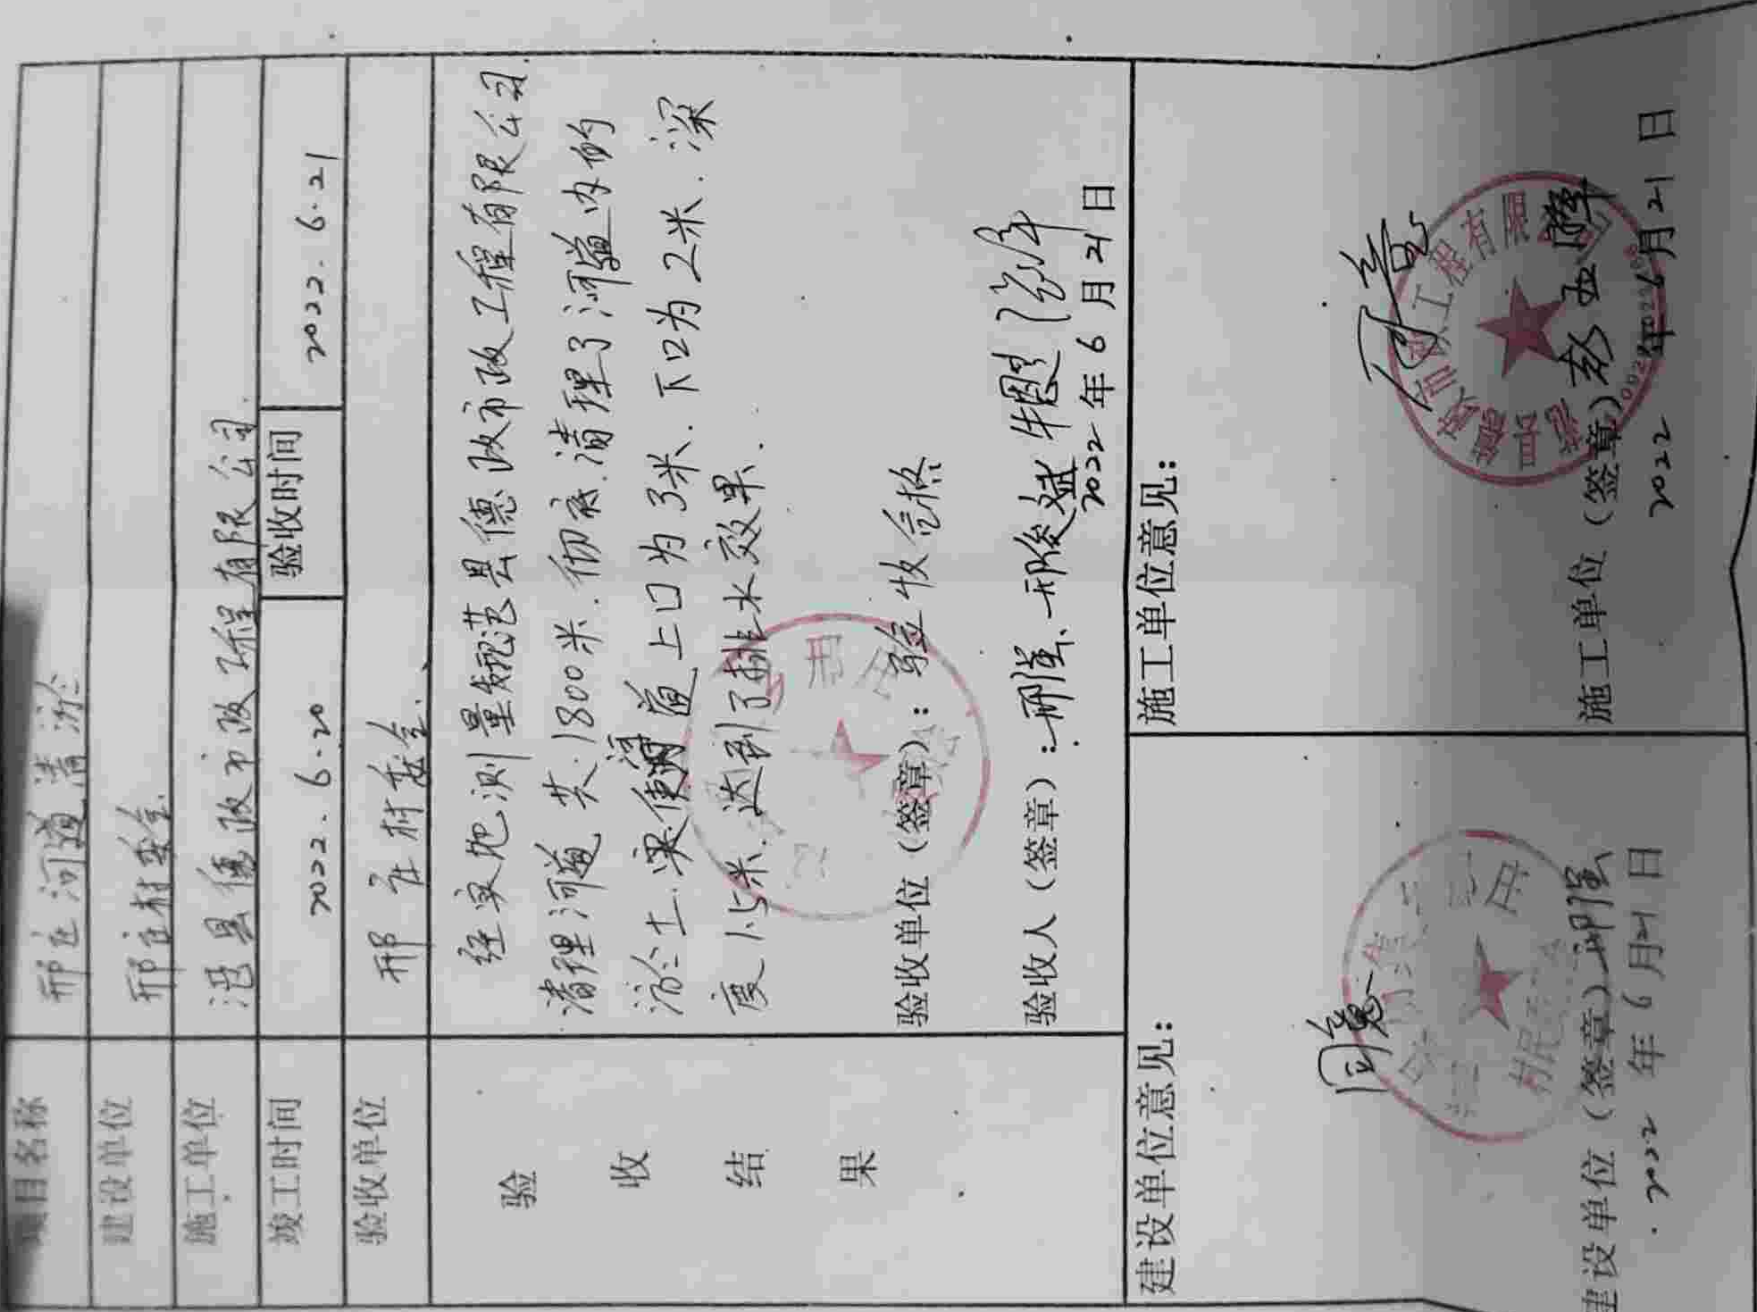 项目名称 邢庄河道清淤
建设单位 邢庄村委会
施工单位 范县德政市政工程有限公司.
竣工时间 2022.6.20 验收时间 2022.6.21
验收单位 邢庄村委会.
验收结果
经实地测量范县德政市政工程有限公司
清理河道共1800米.彻底清理了河道内的
淤土.使河道上口为3米.下口为2米.深
度1.5米.达到了排水效果.
验收单位(签章):验收合格
验收人(签章):邢俊斌
2022年6月21日
建设单位意见:
同意
建设单位(签章)
2022年6月21日
施工单位意见:
同意
施工单位(签章)
2022年6月21日